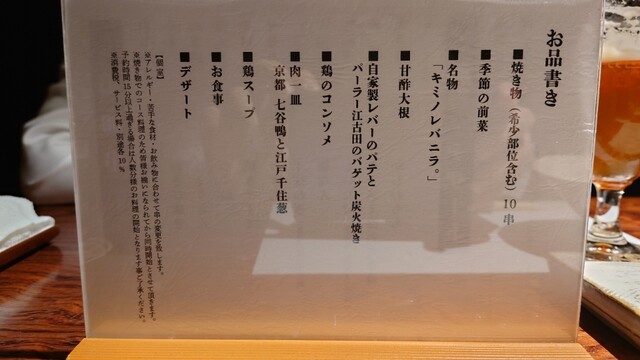 お品書き
■焼き物（希少部位含む）10串
■季節の前菜
■名物
「キミノレバニラ。」
■甘酢大根
■自家製レバーのパテと
パーラー江古田のバゲット炭火焼き
■鶏のコンソメ
■肉一皿
京都 七谷鴨と江戸千住葱
■鶏スープ
■お食事
■デザート
【個室】
※アレルギー・苦手な食材・お飲み物に合わせて串の変更を致します。
※焼き物でのコース料理のため皆様お揃いになられてから同時開始とさせて頂きます。
予約時間15分以上過ぎる場合は人数分様のお料理の開始となります事ご了承ください。
※消費税、サービス料・別途各10%